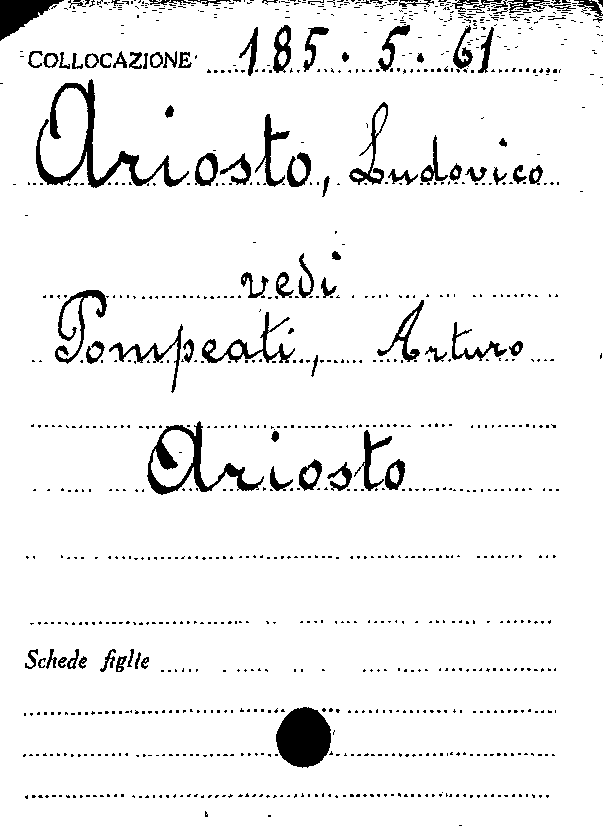 COLLOCAZIONE 185. 5. 61
Ariosto, Ludovico
vedi
Pompeati, Arturo
Ariosto
Schede figlie